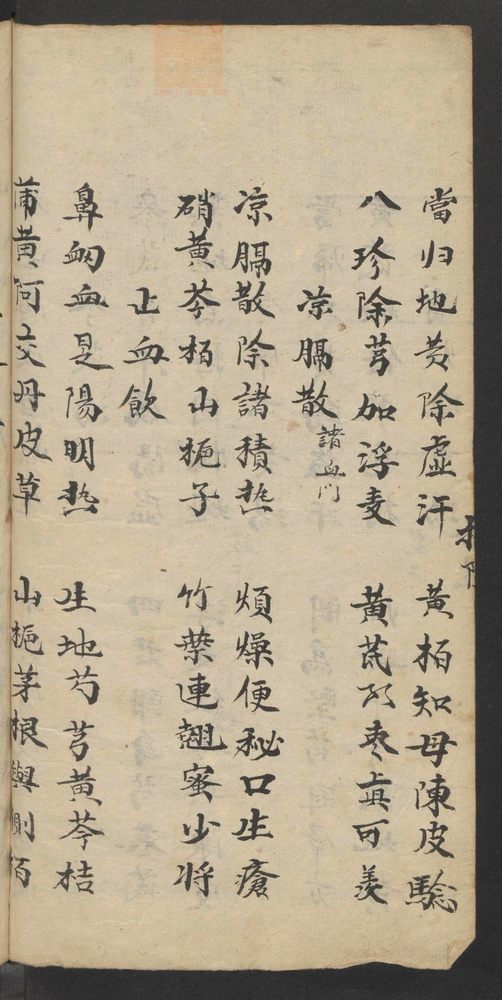 當归地黄除虚汗 黄栢知母陳皮驗
八珍除芎加浮麦 黄芪 枣真可羡
凉膈散 諸血門
凉膈散除諸積热 煩燥便秘口生瘡
硝黄芩栢山栀子 竹葉連翹蜜少将
止血飲
鼻衂血是陽明热 生地芍芎黄芩桔
蒲黄阿交丹皮草 山栀茅根與側百